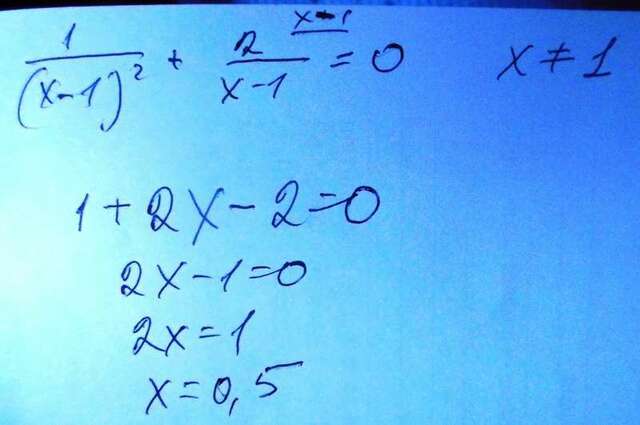 1/(x-1)² + 2/(x-1) = 0   x-1   x ≠ 1
1 + 2x - 2 = 0
2x - 1 = 0
2x = 1
x = 0,5